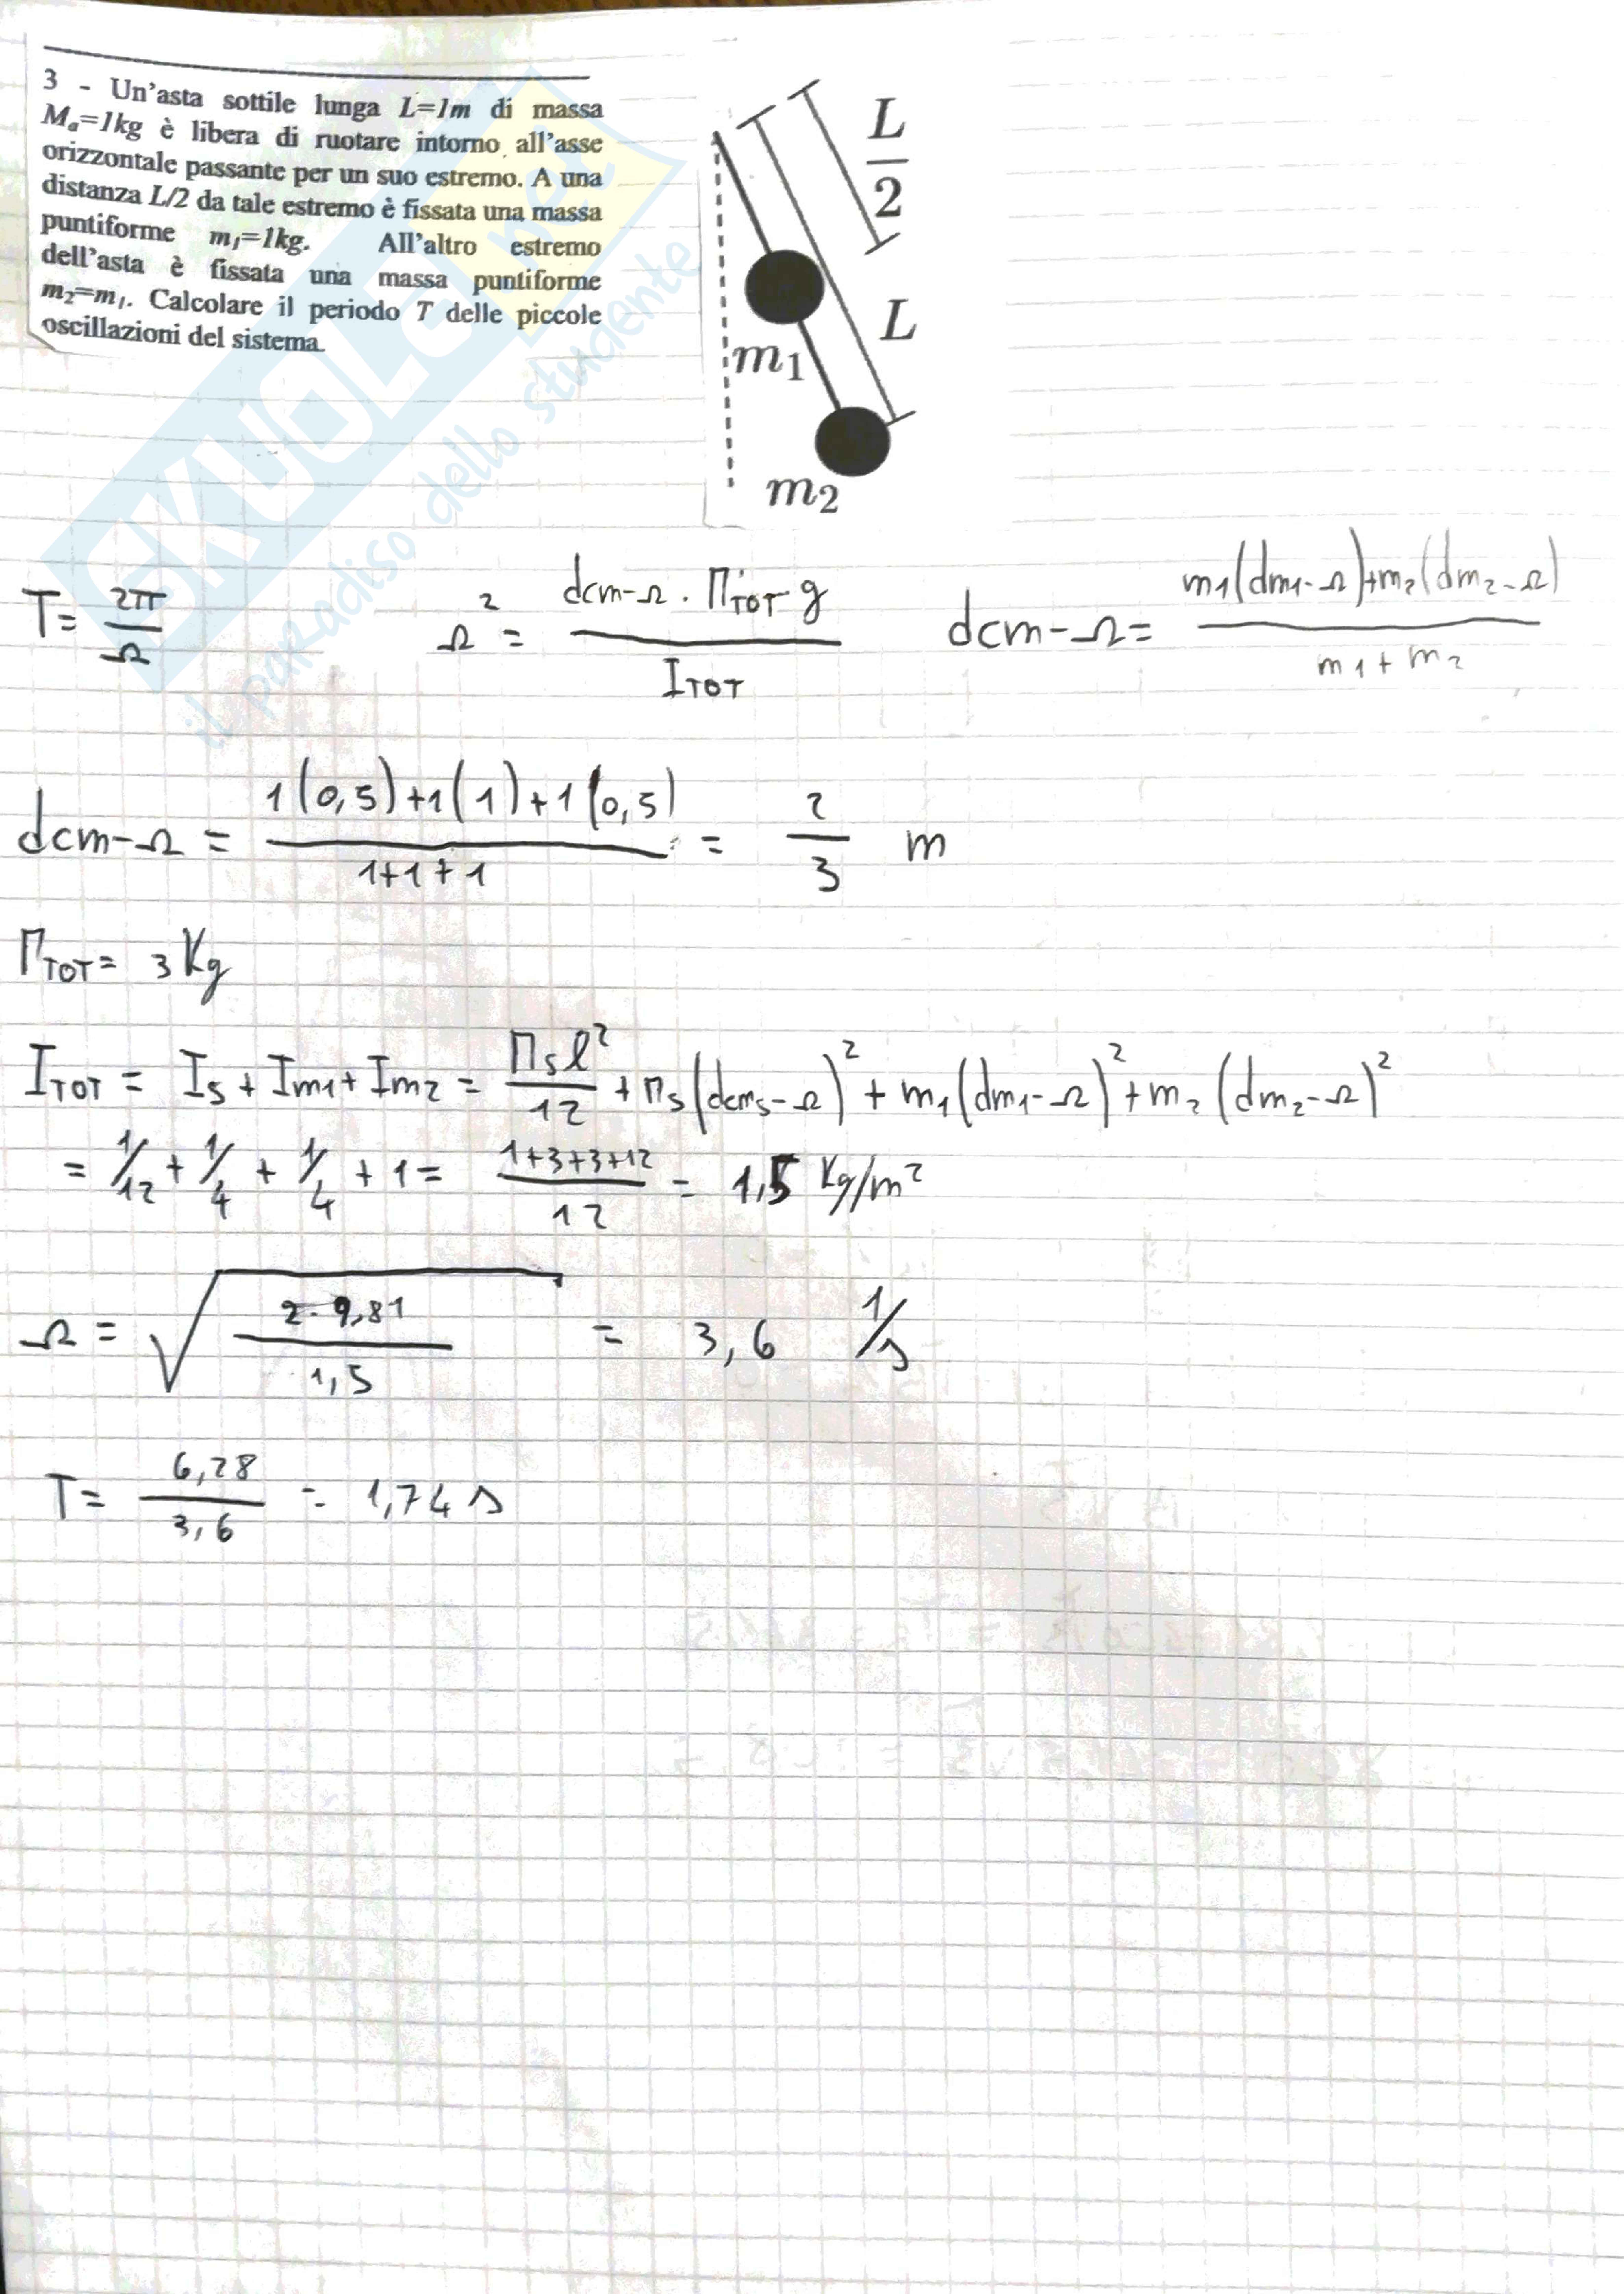 3 - Un'asta sottile lunga L=1m di massa
Mₐ=1kg è libera di ruotare intorno all'asse
orizzontale passante per un suo estremo. A una
distanza L/2 da tale estremo è fissata una massa
puntiforme m₁=1kg. All'altro estremo
dell'asta è fissata una massa puntiforme
m₂=m₁. Calcolare il periodo T delle piccole
oscillazioni del sistema.
L/2
L
m₁
m₂
SKUOLA.net
il paradiso dello studente
T= 2π/Ω   Ω² = dcm-Ω · Mтот g / Iтот   dcm-Ω= m₁(dm₁-Ω)+m₂(dm₂-Ω) / m₁+m₂
dcm-Ω = 1(0,5)+1(1)+1(0,5) / 1+1+1 = 2/3 m
Mтот= 3 Kg
Iтот = Is + Im₁+ Im₂ = Ms l²/12 + Ms(dcms-Ω)² + m₁(dm₁-Ω)² + m₂(dm₂-Ω)²
= 1/12 + 1/4 + 1/4 + 1 = 1+3+3+12 / 12 = 1,5 Kg/m²
Ω = √(2·9,81 / 1,5) = 3,6 1/s
T= 6,28/3,6 = 1,74 s